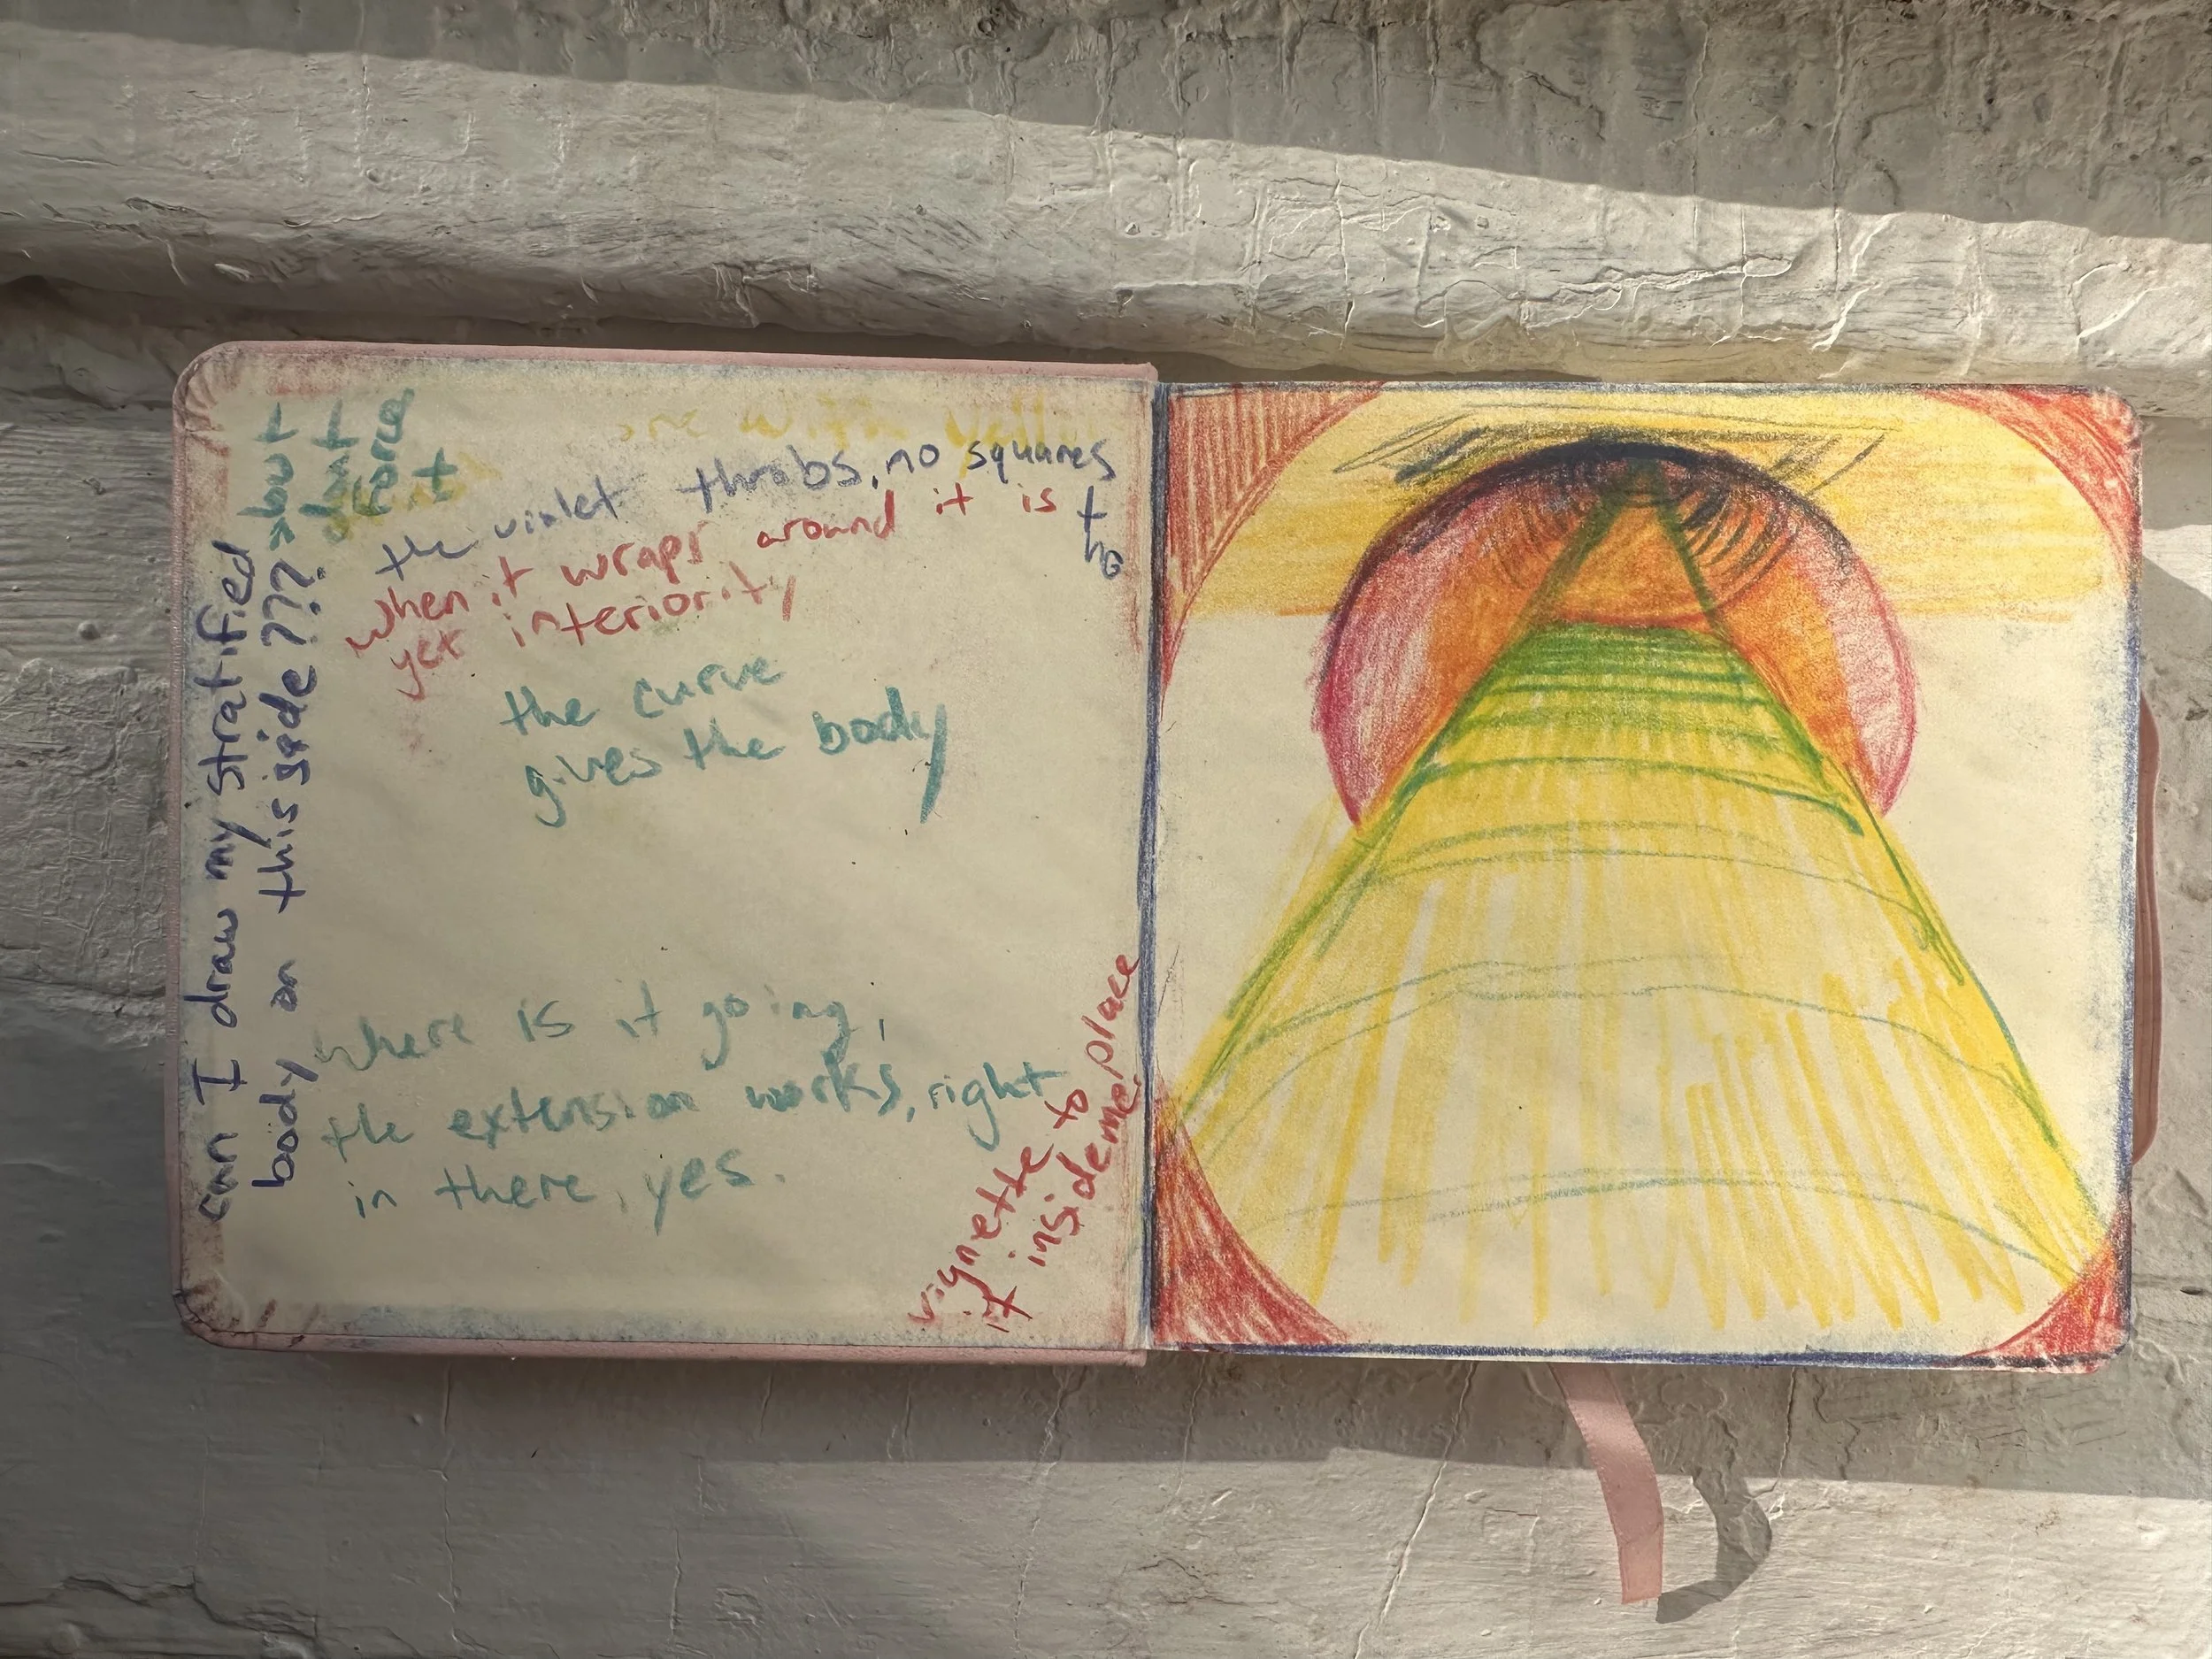 one with yellow
the violet throbs, no squares
tho
when it wraps around it is
yet interiority
the curve
gives the body
where is it going,
the extension works, right
in there, yes.
vignette to place
it inside me
can I draw my stratified
body on this side???
>but
don't
force
it